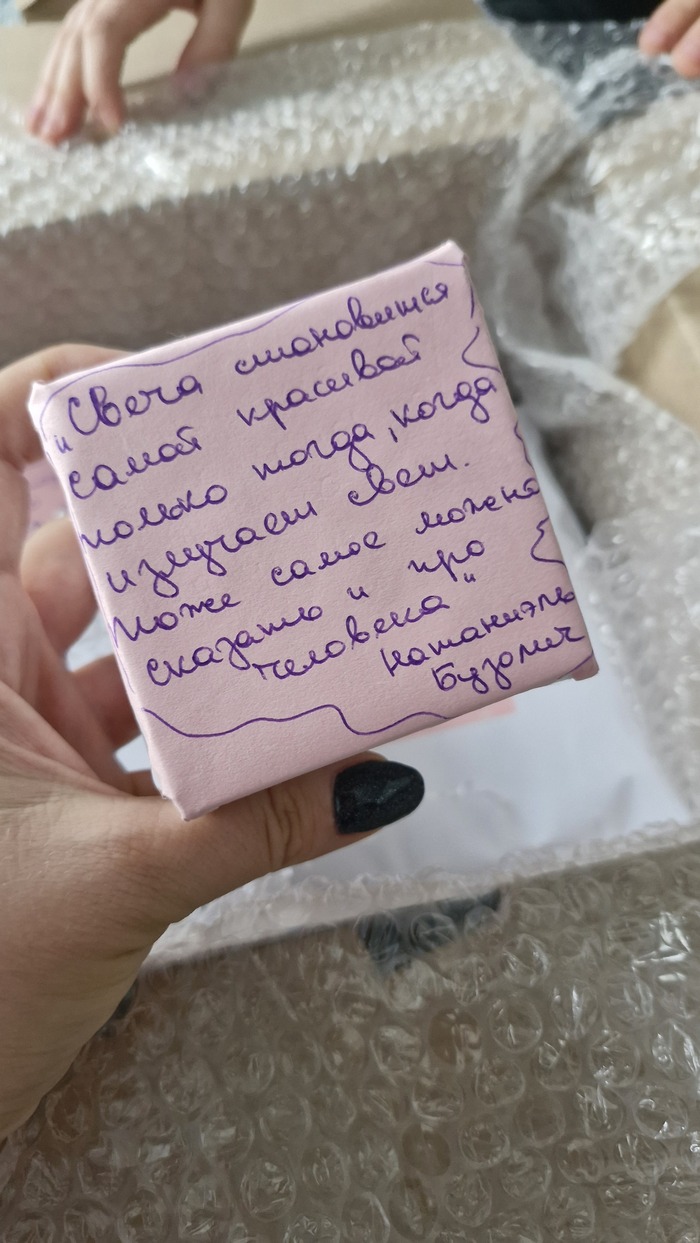 "Свеча становится
самой красивой
только тогда, когда
излучает свет.
Тоже самое можно
сказать и про
человека"
Натаниэль
Бузолич